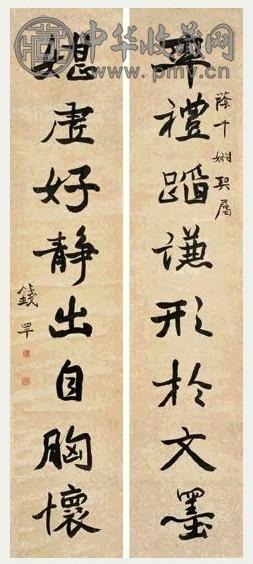 中华收藏网
www.pmyc.cn
率禮蹈謙形於文墨
蔭千姻契屬
媅虛好靜出自胸懷
錢罕